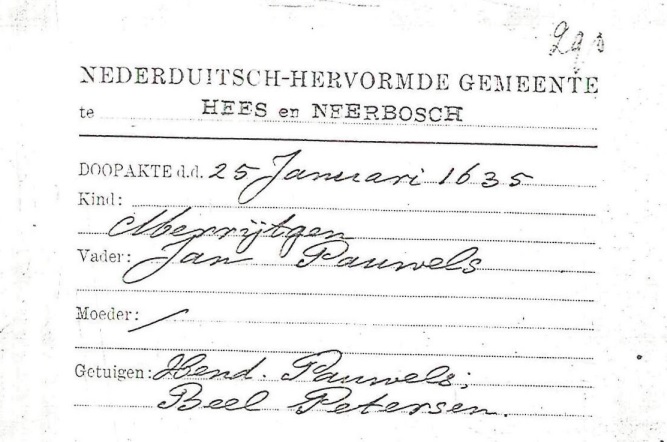 NEDERDUITSCH-HERVORMDE GEMEENTE
te HEES en NEERBOSCH
DOOPAKTE d.d. 25 Januari 1635
Kind:
Merrijtgen
Vader: Jan Pauwels
Moeder: /
Getuigen: Hend. Pauwels;
Beel Petersen.